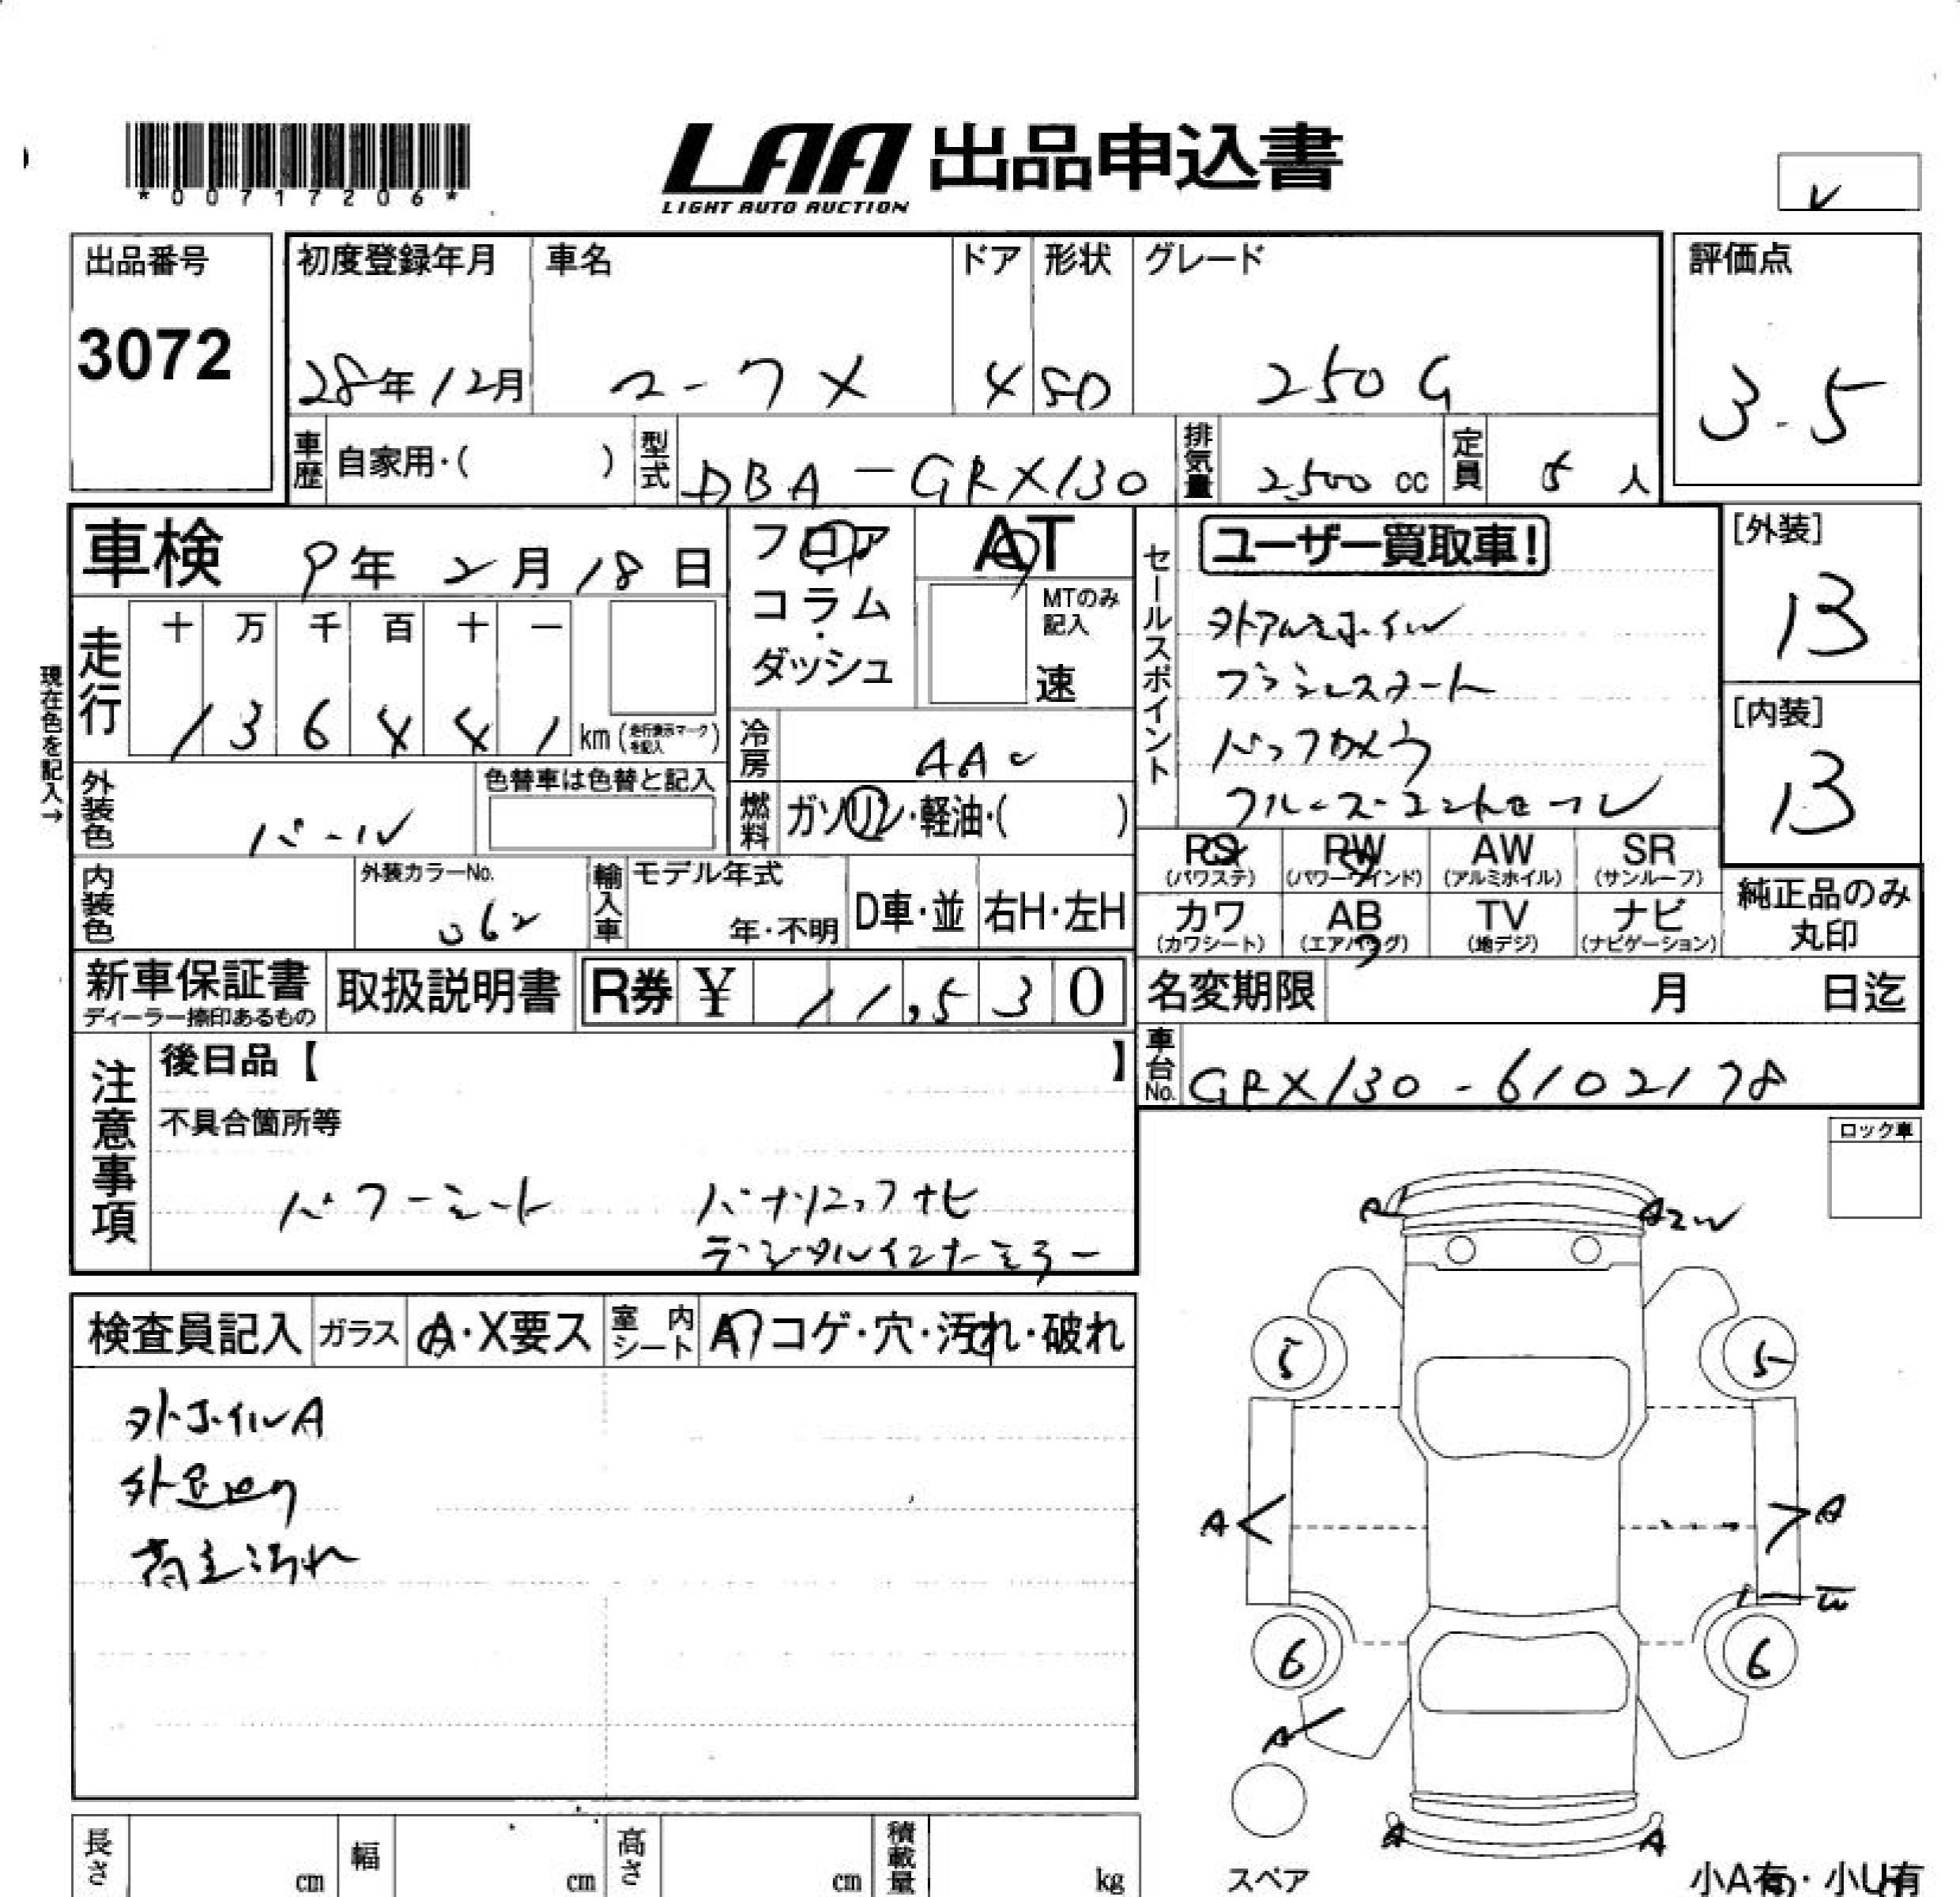 *00717206*
LAA 出品申込書
LIGHT AUTO AUCTION
レ
出品番号
3072
初度登録年月
28年12月
車名
マークX
ドア
4
形状
SD
グレード
250G
評価点
3.5
車歴 自家用・( )
型式 DBA-GRX130
排気量 2500 cc
定員 5 人
車検 9年 2月 18日
フロア・コラム・ダッシュ
AT
MTのみ記入
速
セールスポイント
ユーザー買取車!
外アルミホイル
プッシュスタート
バックカメラ
クルーズコントロール
[外装]
B
[内装]
B
現在色を記入→
走行
十 万 千 百 十 一
1 3 6 4 4 1 km (走行表示マークを記入)
冷房 AAC
外装色 パール
色替車は色替と記入
燃料 ガソリン・軽油・( )
内装色
外装カラーNo.
062
輸入車
モデル年式
年・不明
D車・並
右H・左H
PS (パワステ)
PW (パワーウインド)
AW (アルミホイル)
SR (サンルーフ)
カワ (カワシート)
AB (エアバッグ)
TV (地デジ)
ナビ (ナビゲーション)
純正品のみ丸印
新車保証書
ディーラー捺印あるもの
取扱説明書
R券 ¥ 11,530
名変期限 月 日迄
車台No. GRX130-6102178
注意事項
後日品【 】
不具合箇所等
パワーシート
パナソニックナビ
デジタルインナーミラー
ロック車
検査員記入
ガラス A・X要ス
室内シート A コゲ・穴・汚れ・破れ
外ホイルA
外足回り
荷室汚れ
A
A2 W
5
5
A
A
6
6
A
A
A
長さ cm
幅 cm
高さ cm
積載量 kg
スペア
小A有・小U有